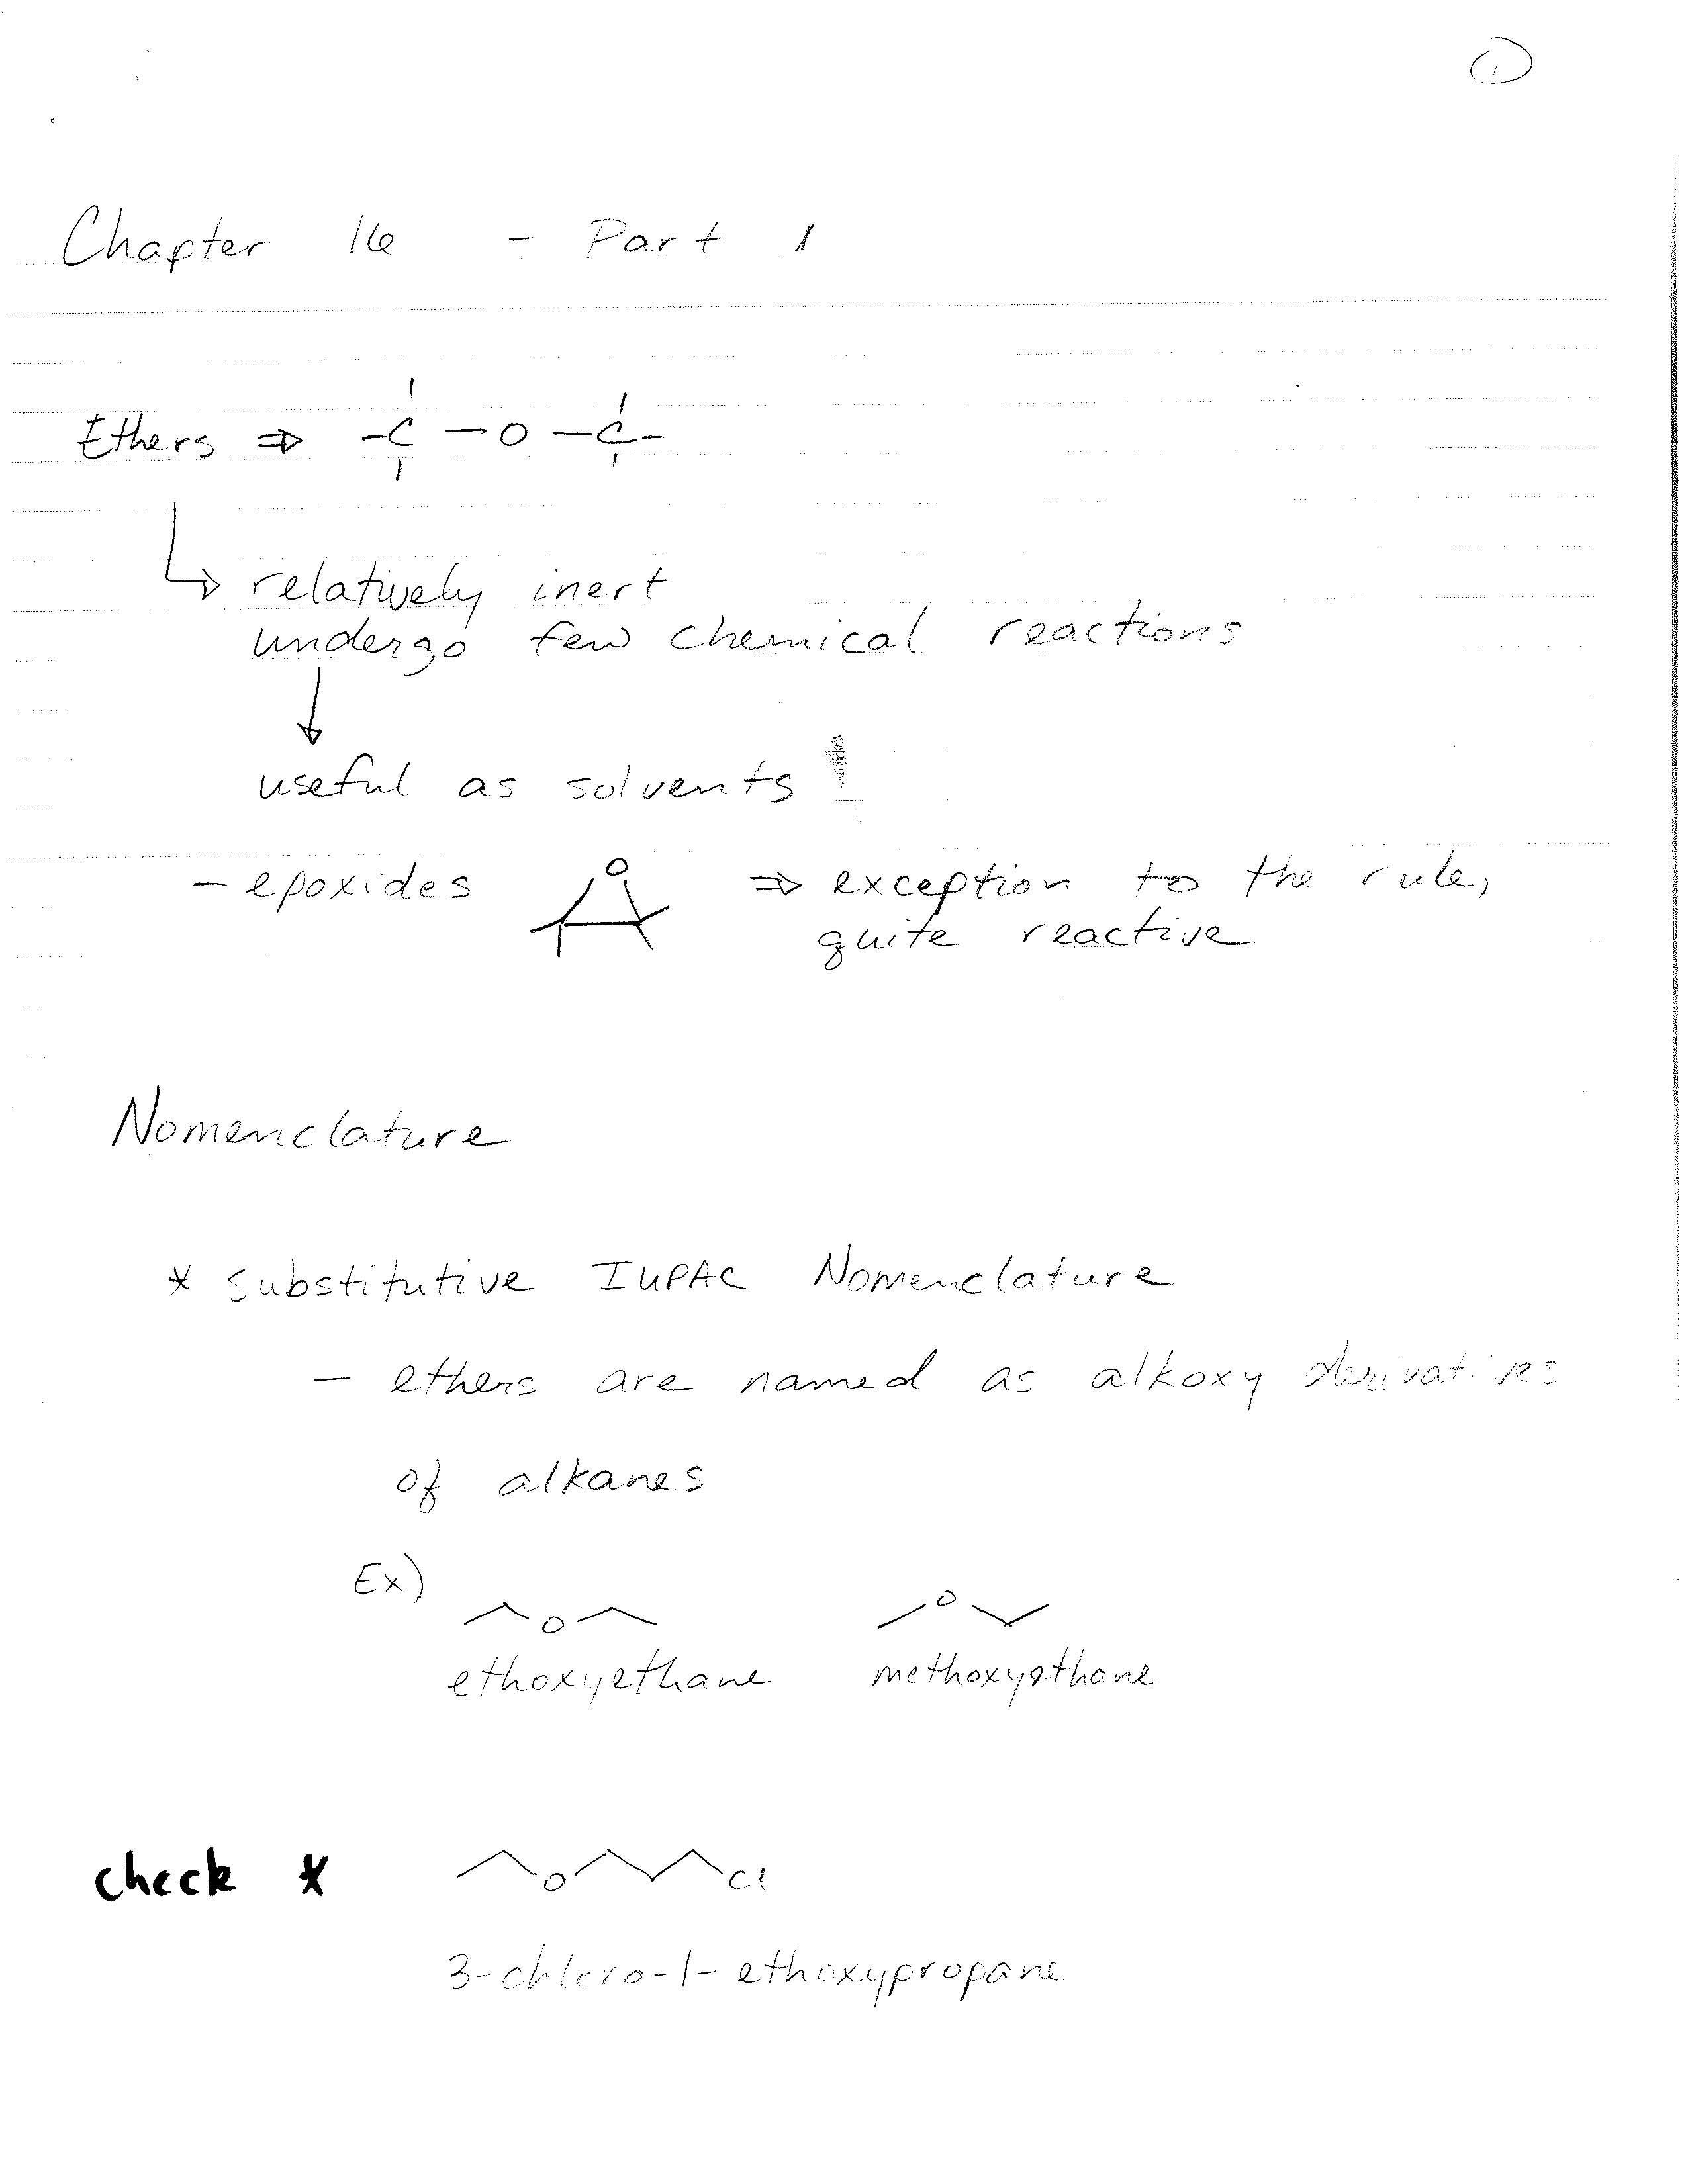 1
Chapter 16 - Part 1
Ethers ⇒ -C-O-C-
↳ relatively inert
undergo few chemical reactions
↓
useful as solvents
- epoxides O ⇒ exception to the rule,
quite reactive
Nomenclature
* substitutive IUPAC Nomenclature
- ethers are named as alkoxy derivatives
of alkanes
Ex)
O O
ethoxyethane methoxyethane
check * O Cl
3-chloro-1-ethoxypropane